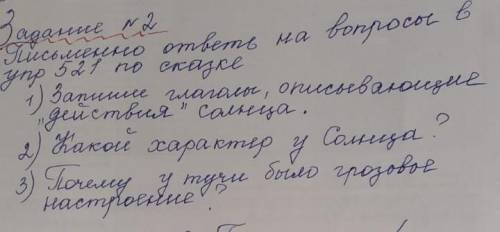 Задание №2
Письменно ответь на вопросы в
упр 521 по сказке
1) Запиши глаголы, описывающие
"действия" солнца.
2) Какой характер у Солнца?
3) Почему у тучи было грозовое
настроение?